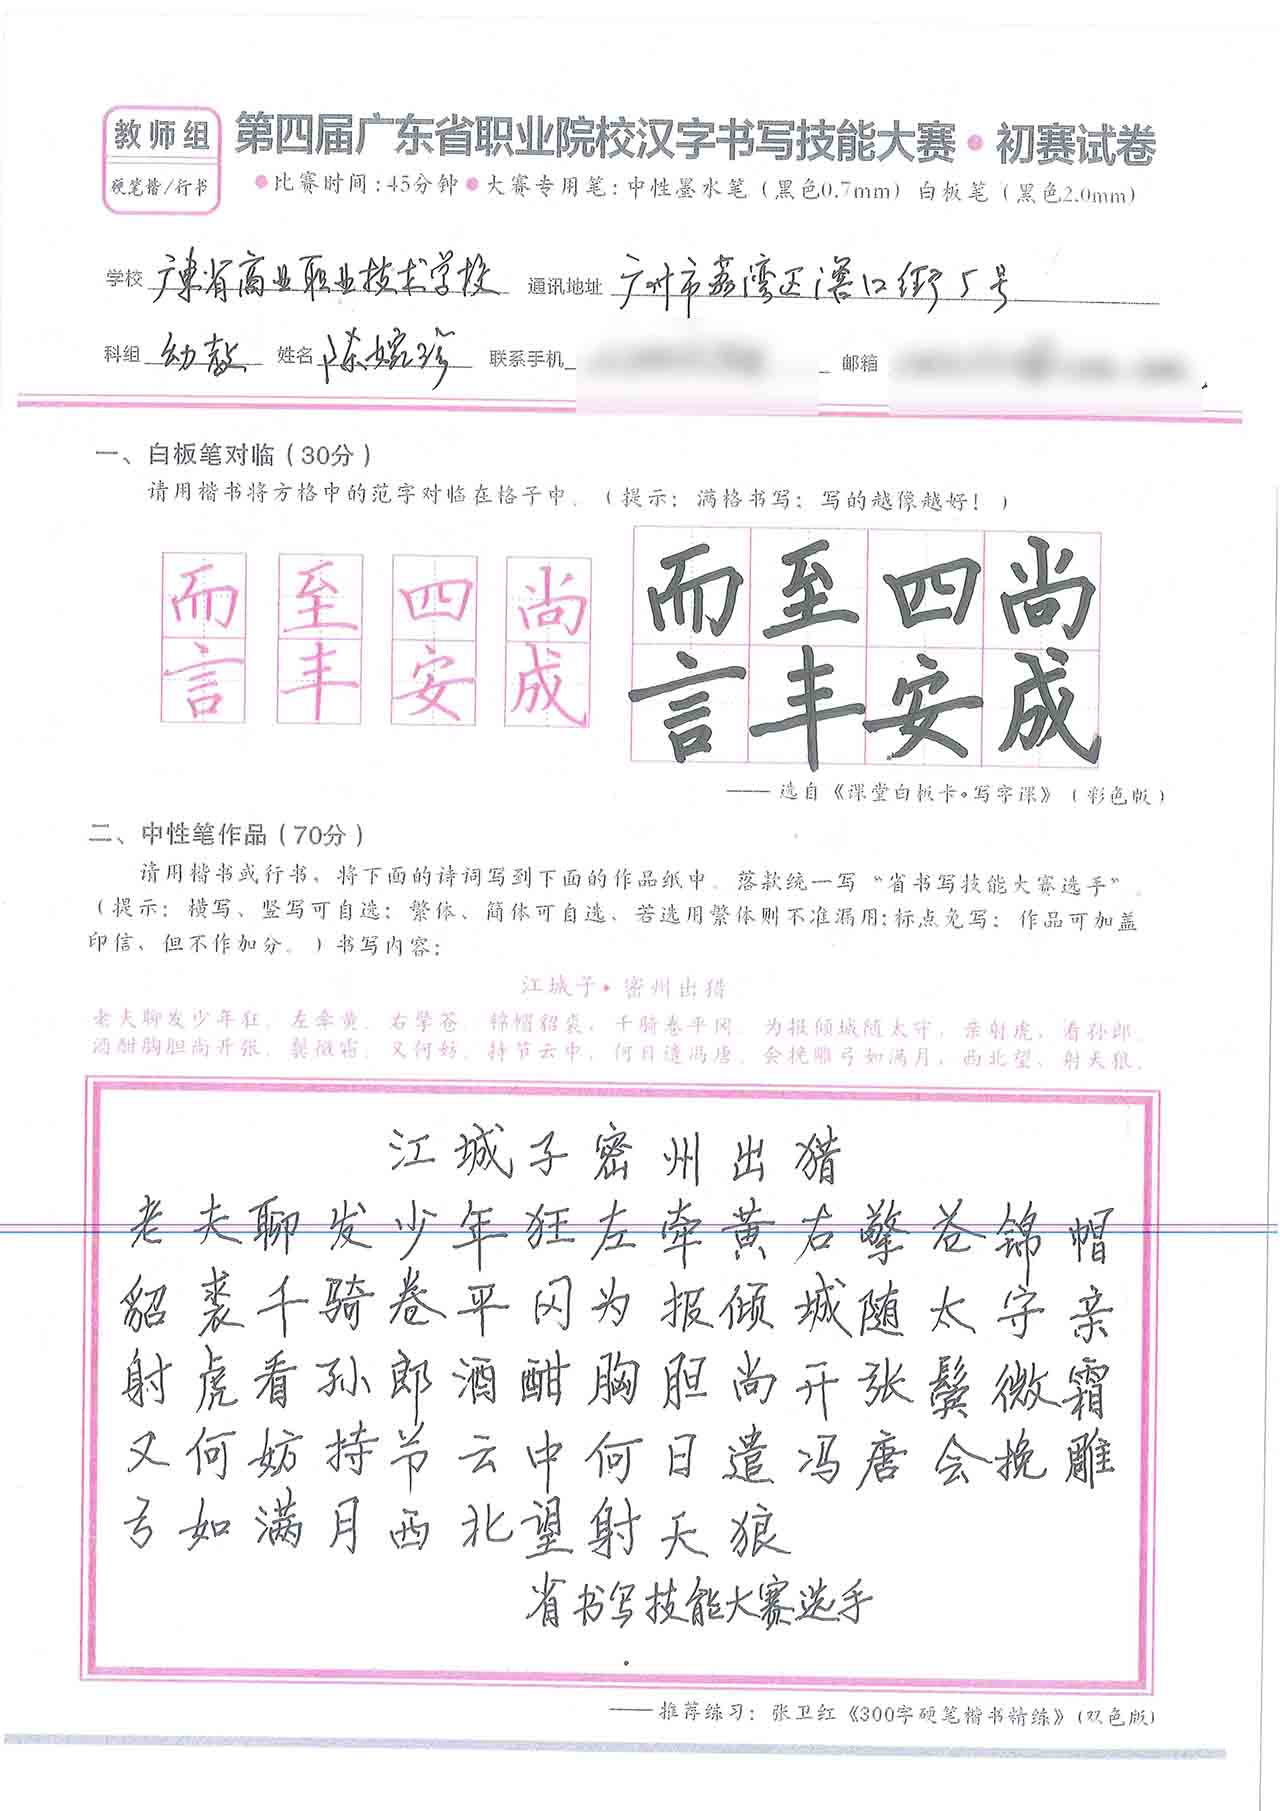 教师组
硬笔楷/行书
第四届广东省职业院校汉字书写技能大赛·初赛试卷
●比赛时间:45分钟●大赛专用笔:中性墨水笔(黑色0.7mm) 白板笔(黑色2.0mm)
学校 广東省商业职业技术学校 通讯地址 广州市荔湾区滘口街5号
科组 幼教 姓名 陈婉珍 联系手机 邮箱
一、白板笔对临(30分)
请用楷书将方格中的范字对临在格子中。(提示:满格书写;写的越像越好!)
而 至 四 尚
言 丰 安 成
而至四尚
言丰安成
——选自《课堂白板卡·写字课》(彩色版)
二、中性笔作品(70分)
请用楷书或行书,将下面的诗词写到下面的作品纸中。落款统一写“省书写技能大赛选手”。
(提示:横写、竖写可自选;繁体、简体可自选、若选用繁体则不准漏用;标点免写;作品可加盖
印信、但不作加分。)书写内容:
江城子·密州出猎
老夫聊发少年狂,左牵黄,右擎苍,锦帽貂裘,千骑卷平冈。为报倾城随太守,亲射虎,看孙郎。
酒酣胸胆尚开张,鬓微霜,又何妨,持节云中,何日遣冯唐。会挽雕弓如满月,西北望,射天狼。
江城子密州出猎
老夫聊发少年狂左牵黄右擎苍锦帽
貂裘千骑卷平冈为报倾城随太守亲
射虎看孙郎酒酣胸胆尚开张鬓微霜
又何妨持节云中何日遣冯唐会挽雕
弓如满月西北望射天狼
省书写技能大赛选手
——推荐练习:张卫红《300字硬笔楷书精练》(双色版)